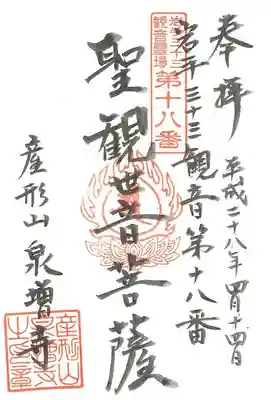 奉拝
平成二十八年四月十四日
岩手三十三観音第十八番
岩手三十三
観音霊場
第十八番
聖観世音菩薩
産形山泉増寺
産形山